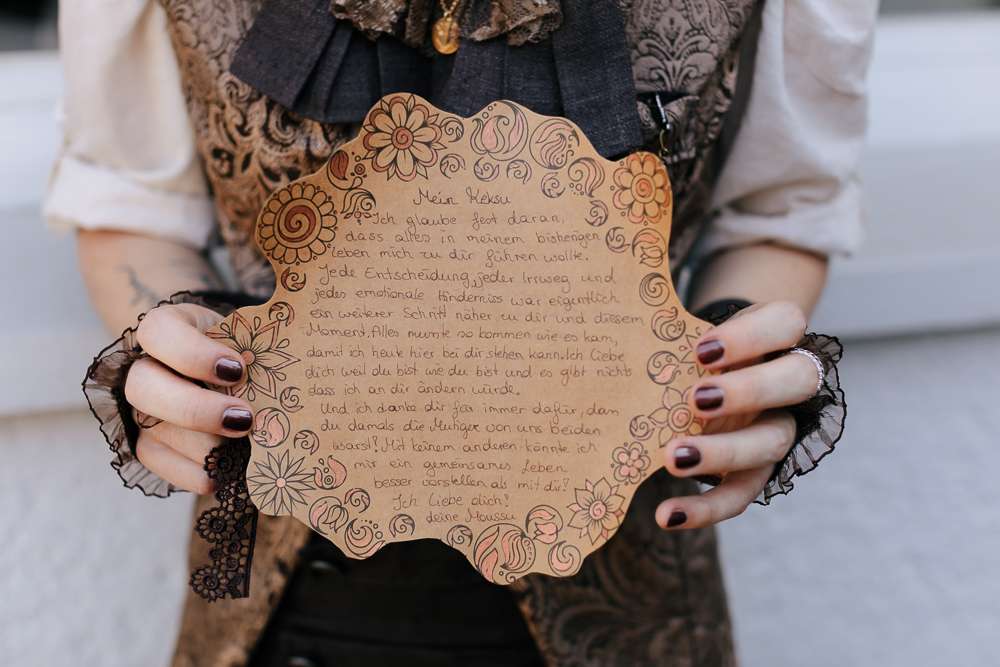 Mein Keksu
Ich glaube fest daran,
dass alles in meinem bisherigen
Leben mich zu dir führen wollte.
Jede Entscheidung, jeder Irrweg und
jedes emotionale Hinderniss war eigentlich
ein weiterer Schritt näher zu dir und diesem
Moment. Alles musste so kommen wie es kam,
damit ich heute hier bei dir stehen kann. Ich Liebe
dich weil du bist wie du bist und es gibt nichts
dass ich an dir ändern würde.
Und ich danke dir für immer dafür, dass
du damals die Mutiger von uns beiden
warst! Mit keinem anderen könnte ich
mir ein gemeinsames Leben
besser vorstellen als mit dir!
Ich Liebe dich!
deine Moussu